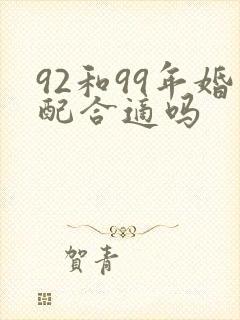 92和99年婚
配合适吗
賀青